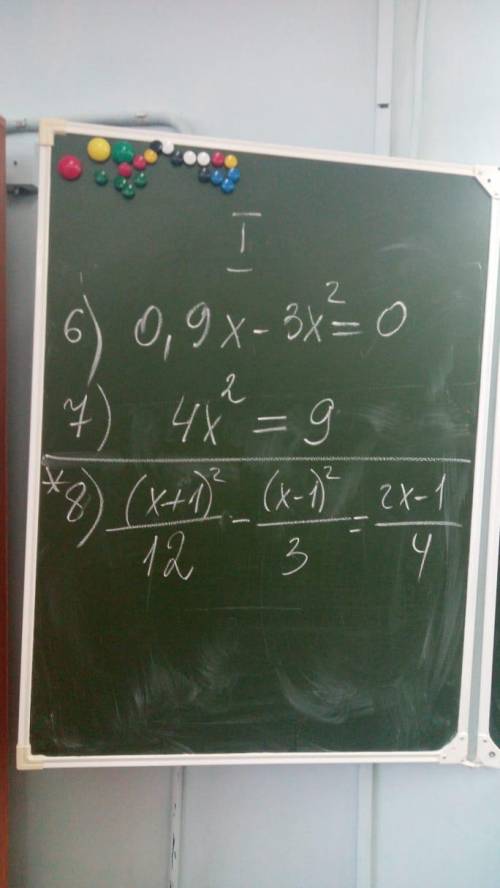 I
6) 0,9x - 3x² = 0
7) 4x² = 9
*8) (x+1)²/12 - (x-1)²/3 = 2x-1/4